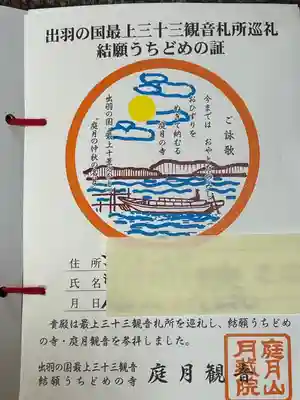 出羽の国最上三十三観音札所巡礼
結願うちどめの証
ご詠歌
今までは おやと
おひずりを
ぬぎて納むる
庭月の寺
出羽の国最上十景
"庭月の仲秋の
住所
氏名
月日
貴殿は最上三十三観音札所を巡礼し、結願うちどめ
の寺・庭月観音を参拝しました。
出羽の国最上三十三観音
結願うちどめの寺
庭月観音
庭月山
月蔵院